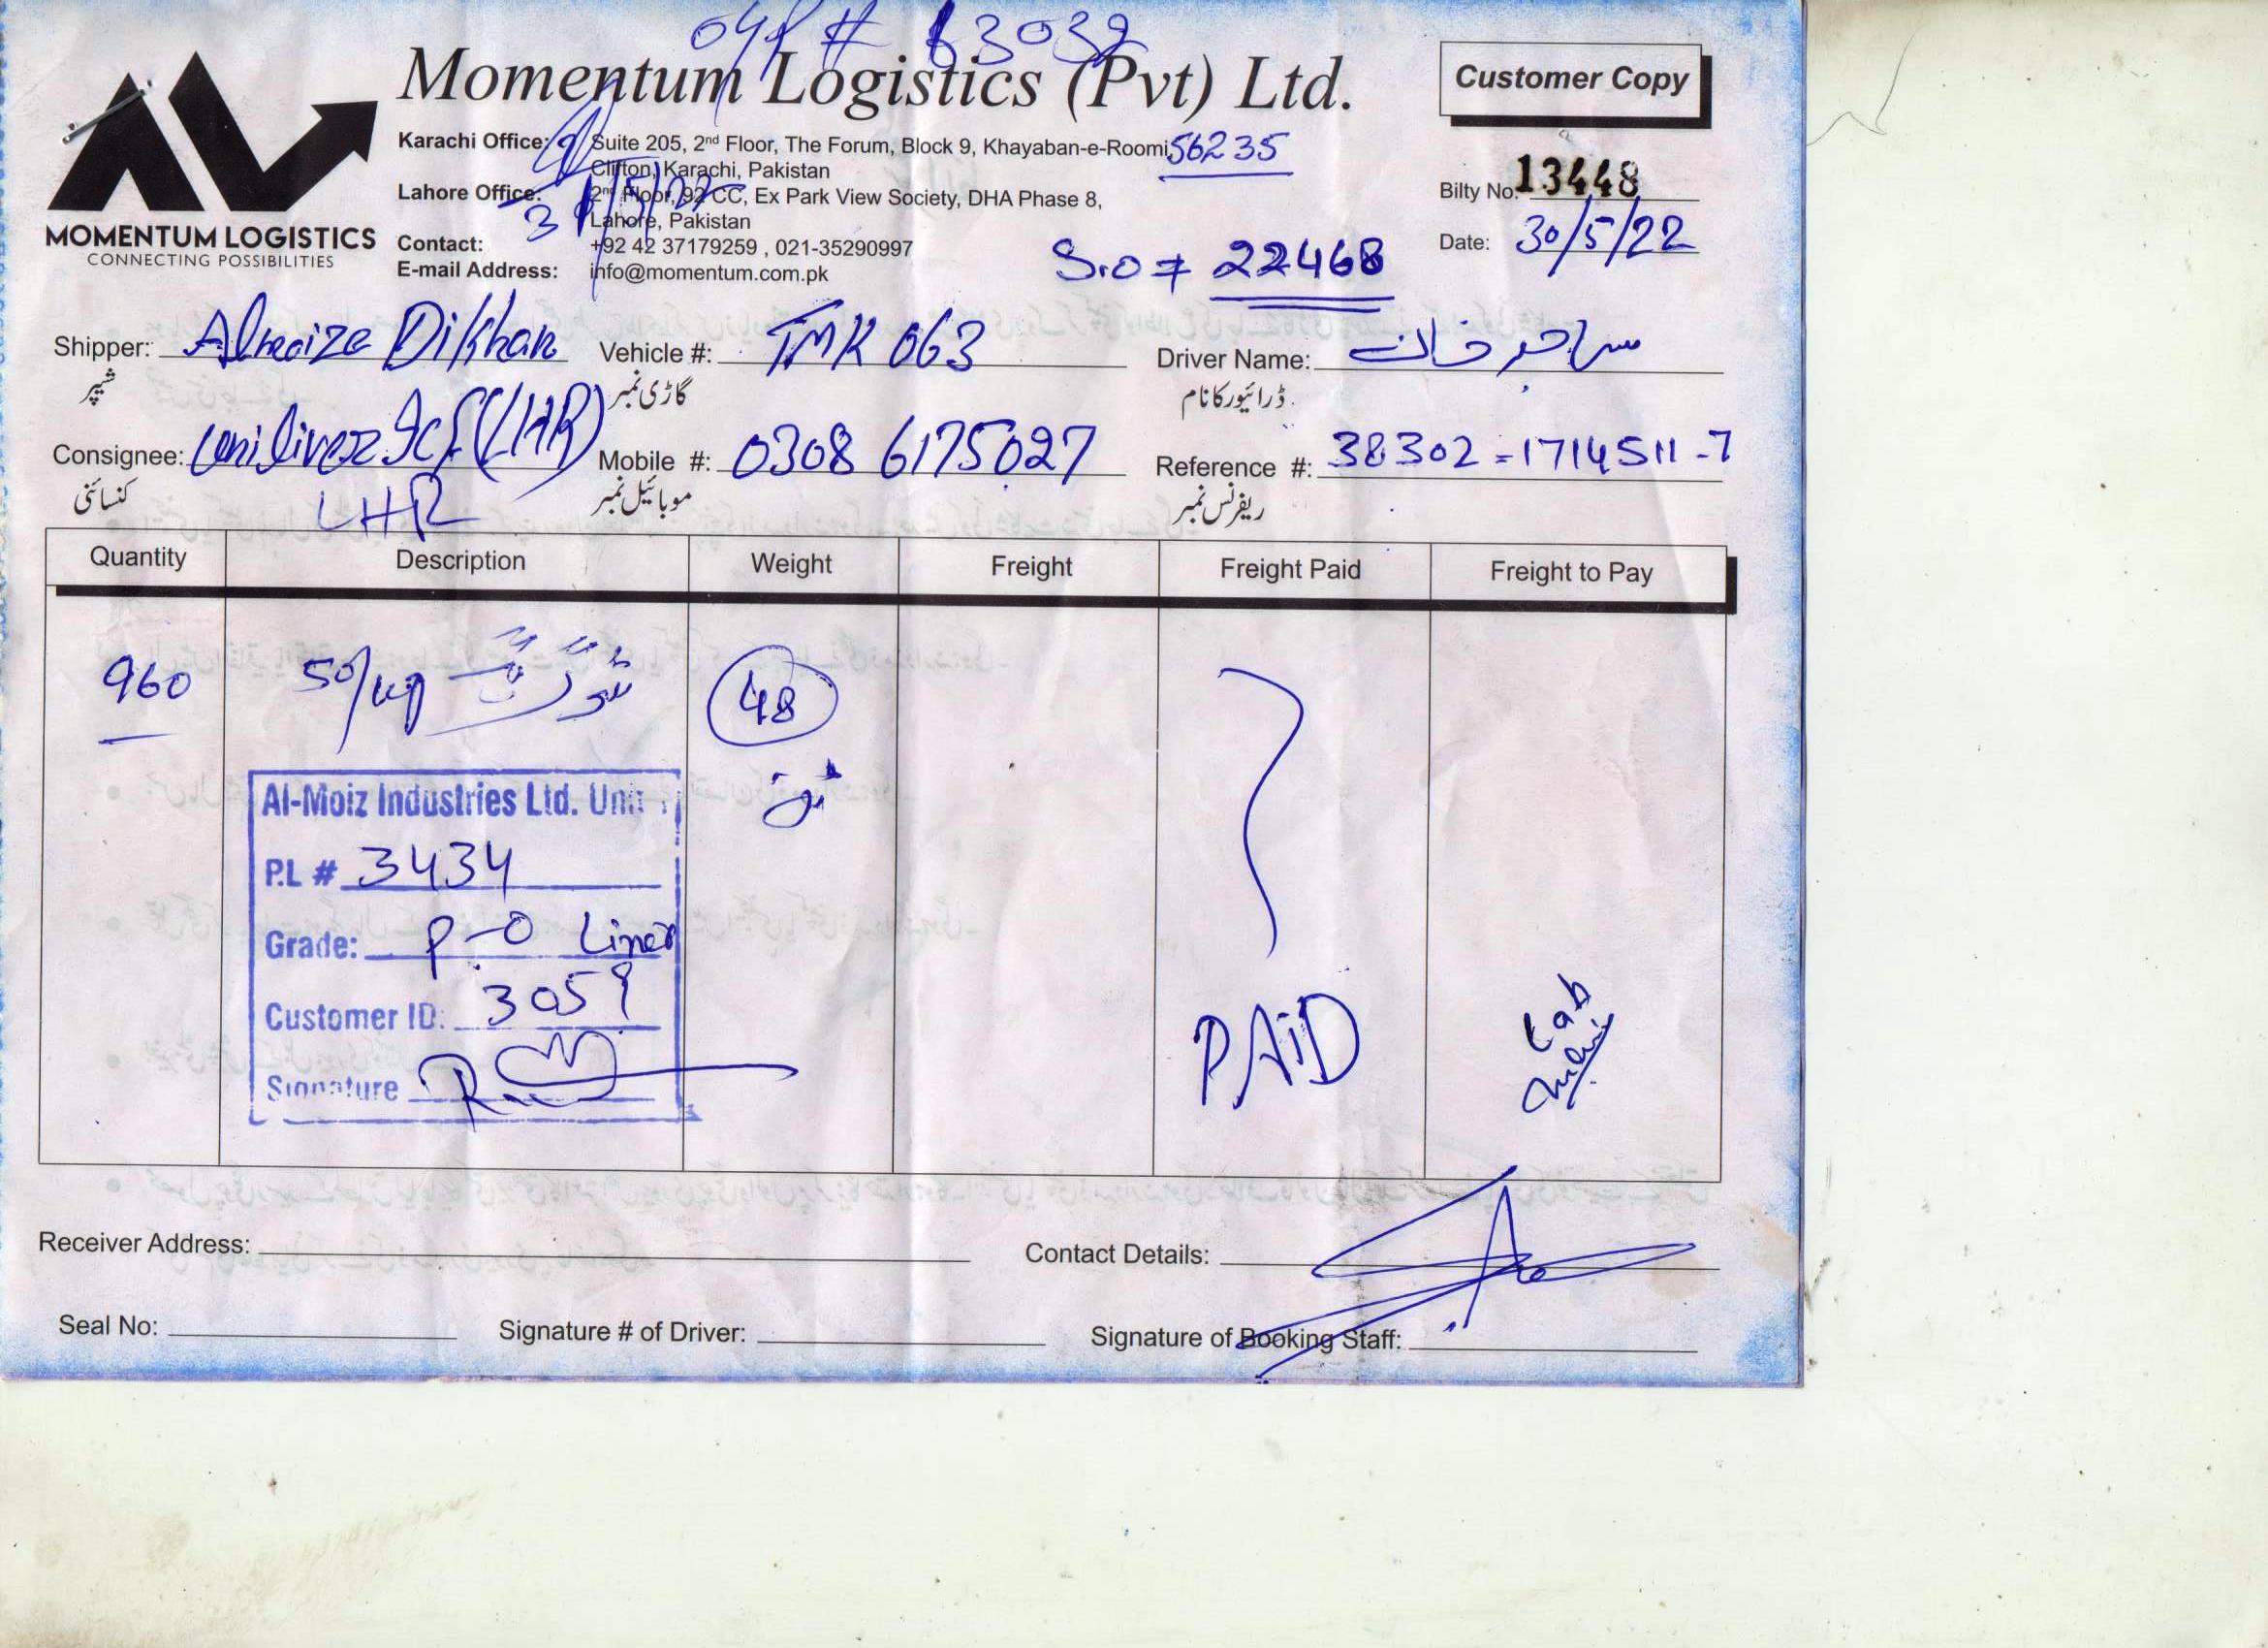 O4P # 63032
Momentum Logistics (Pvt) Ltd.
Customer Copy
MOMENTUM LOGISTICS
CONNECTING POSSIBILITIES
Karachi Office: Suite 205, 2nd Floor, The Forum, Block 9, Khayaban-e-Roomi, 56235
Clifton, Karachi, Pakistan
Lahore Office: 2nd Floor, 92 CC, Ex Park View Society, DHA Phase 8,
Lahore, Pakistan
31/5/22
Contact: +92 42 37179259 , 021-35290997
E-mail Address: info@momentum.com.pk
Bilty No. 13448
Date: 30/5/22
S.O # 22468
Shipper: Almoize Dikhan Vehicle #: TMK 063 Driver Name: ساجد خان
شیپر گاڑی نمبر ڈرائیور کا نام
Consignee: uniliver Icf (LHR) Mobile #: 0308 6175027 Reference #: 38302-1714511-7
کنسائنی LHR موبائیل نمبر ریفرنس نمبر
Quantity Description Weight Freight Freight Paid Freight to Pay
960 50/kg شوگر 48
ٹن
Al-Moiz Industries Ltd. Unit
P.L # 3434
Grade: P-O Liner
Customer ID. 3059
Signature
PAiD
Lab
Receiver Address: Contact Details:
Seal No: Signature # of Driver: Signature of Booking Staff: